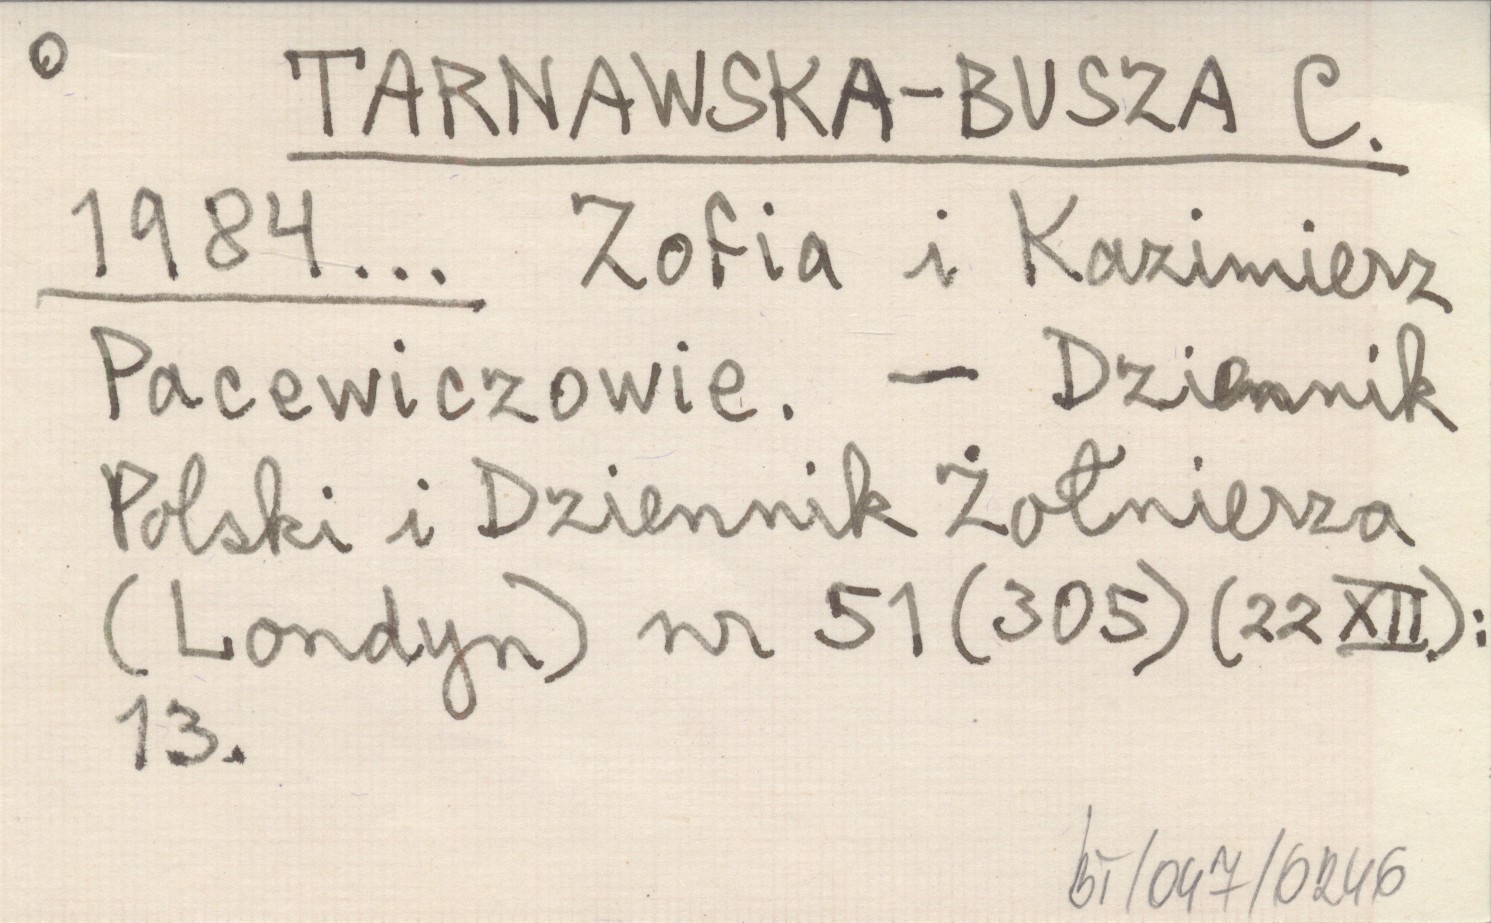 TARNAWSKA-BUSZA C.
1984... Zofia i Kazimierz
Pacewiczowie. — Dziennik
Polski i Dziennik Żołnierza
(Londyn) nr 51 (305) (22 XII):
13.
bt/047/0246